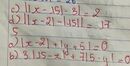 c) ||x - 15| - 3| = 2
d) ||x - 2| - |15|| = 17
5
a) |x - 2| + |y + 5| = 0
b) 3.|5 - x| + 7|5 - y| = 0